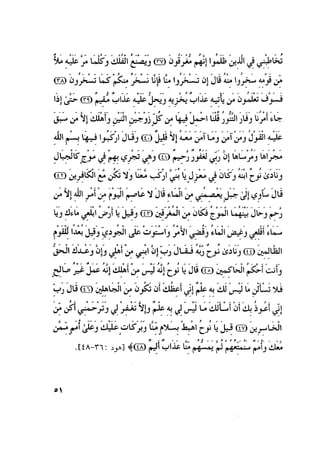 تُخَاطِبْنِي فِي الَّذِينَ ظَلَمُوا إِنَّهُم مُّغْرَقُونَ ﴿٣٧﴾ وَيَصْنَعُ الْفُلْكَ وَكُلَّمَا مَرَّ عَلَيْهِ مَلأٌ
مِّن قَوْمِهِ سَخِرُوا مِنْهُ قَالَ إِن تَسْخَرُوا مِنَّا فَإِنَّا نَسْخَرُ مِنكُمْ كَمَا تَسْخَرُونَ ﴿٣٨﴾
فَسَوْفَ تَعْلَمُونَ مَن يَأْتِيهِ عَذَابٌ يُخْزِيهِ وَيَحِلُّ عَلَيْهِ عَذَابٌ مُّقِيمٌ ﴿٣٩﴾ حَتَّىٰ إِذَا
جَاءَ أَمْرُنَا وَفَارَ التَّنُّورُ قُلْنَا احْمِلْ فِيهَا مِن كُلٍّ زَوْجَيْنِ اثْنَيْنِ وَأَهْلَكَ إِلاَّ مَن سَبَقَ
عَلَيْهِ الْقَوْلُ وَمَنْ آمَنَ وَمَا آمَنَ مَعَهُ إِلاَّ قَلِيلٌ ﴿٤٠﴾ وَقَالَ ارْكَبُوا فِيهَا بِسْمِ اللَّهِ
مَجْرَاهَا وَمُرْسَاهَا إِنَّ رَبِّي لَغَفُورٌ رَّحِيمٌ ﴿٤١﴾ وَهِيَ تَجْرِي بِهِمْ فِي مَوْجٍ كَالْجِبَالِ
وَنَادَىٰ نُوحٌ ابْنَهُ وَكَانَ فِي مَعْزِلٍ يَا بُنَيَّ ارْكَب مَّعَنَا وَلا تَكُن مَّعَ الْكَافِرِينَ ﴿٤٢﴾
قَالَ سَآوِي إِلَىٰ جَبَلٍ يَعْصِمُنِي مِنَ الْمَاءِ قَالَ لا عَاصِمَ الْيَوْمَ مِنْ أَمْرِ اللَّهِ إِلاَّ مَن
رَّحِمَ وَحَالَ بَيْنَهُمَا الْمَوْجُ فَكَانَ مِنَ الْمُغْرَقِينَ ﴿٤٣﴾ وَقِيلَ يَا أَرْضُ ابْلَعِي مَاءَكِ وَيَا
سَمَاءُ أَقْلِعِي وَغِيضَ الْمَاءُ وَقُضِيَ الأَمْرُ وَاسْتَوَتْ عَلَى الْجُودِيِّ وَقِيلَ بُعْدًا لِّلْقَوْمِ
الظَّالِمِينَ ﴿٤٤﴾ وَنَادَىٰ نُوحٌ رَّبَّهُ فَقَالَ رَبِّ إِنَّ ابْنِي مِنْ أَهْلِي وَإِنَّ وَعْدَكَ الْحَقُّ
وَأَنتَ أَحْكَمُ الْحَاكِمِينَ ﴿٤٥﴾ قَالَ يَا نُوحُ إِنَّهُ لَيْسَ مِنْ أَهْلِكَ إِنَّهُ عَمَلٌ غَيْرُ صَالِحٍ
فَلا تَسْأَلْنِ مَا لَيْسَ لَكَ بِهِ عِلْمٌ إِنِّي أَعِظُكَ أَن تَكُونَ مِنَ الْجَاهِلِينَ ﴿٤٦﴾ قَالَ رَبِّ
إِنِّي أَعُوذُ بِكَ أَنْ أَسْأَلَكَ مَا لَيْسَ لِي بِهِ عِلْمٌ وَإِلاَّ تَغْفِرْ لِي وَتَرْحَمْنِي أَكُن مِّنَ
الْخَاسِرِينَ ﴿٤٧﴾ قِيلَ يَا نُوحُ اهْبِطْ بِسَلامٍ مِّنَّا وَبَرَكَاتٍ عَلَيْكَ وَعَلَىٰ أُمَمٍ مِّمَّن
مَّعَكَ وَأُمَمٌ سَنُمَتِّعُهُمْ ثُمَّ يَمَسُّهُم مِّنَّا عَذَابٌ أَلِيمٌ ﴿٤٨﴾ [هود : ٣٦-٤٨].
٥١